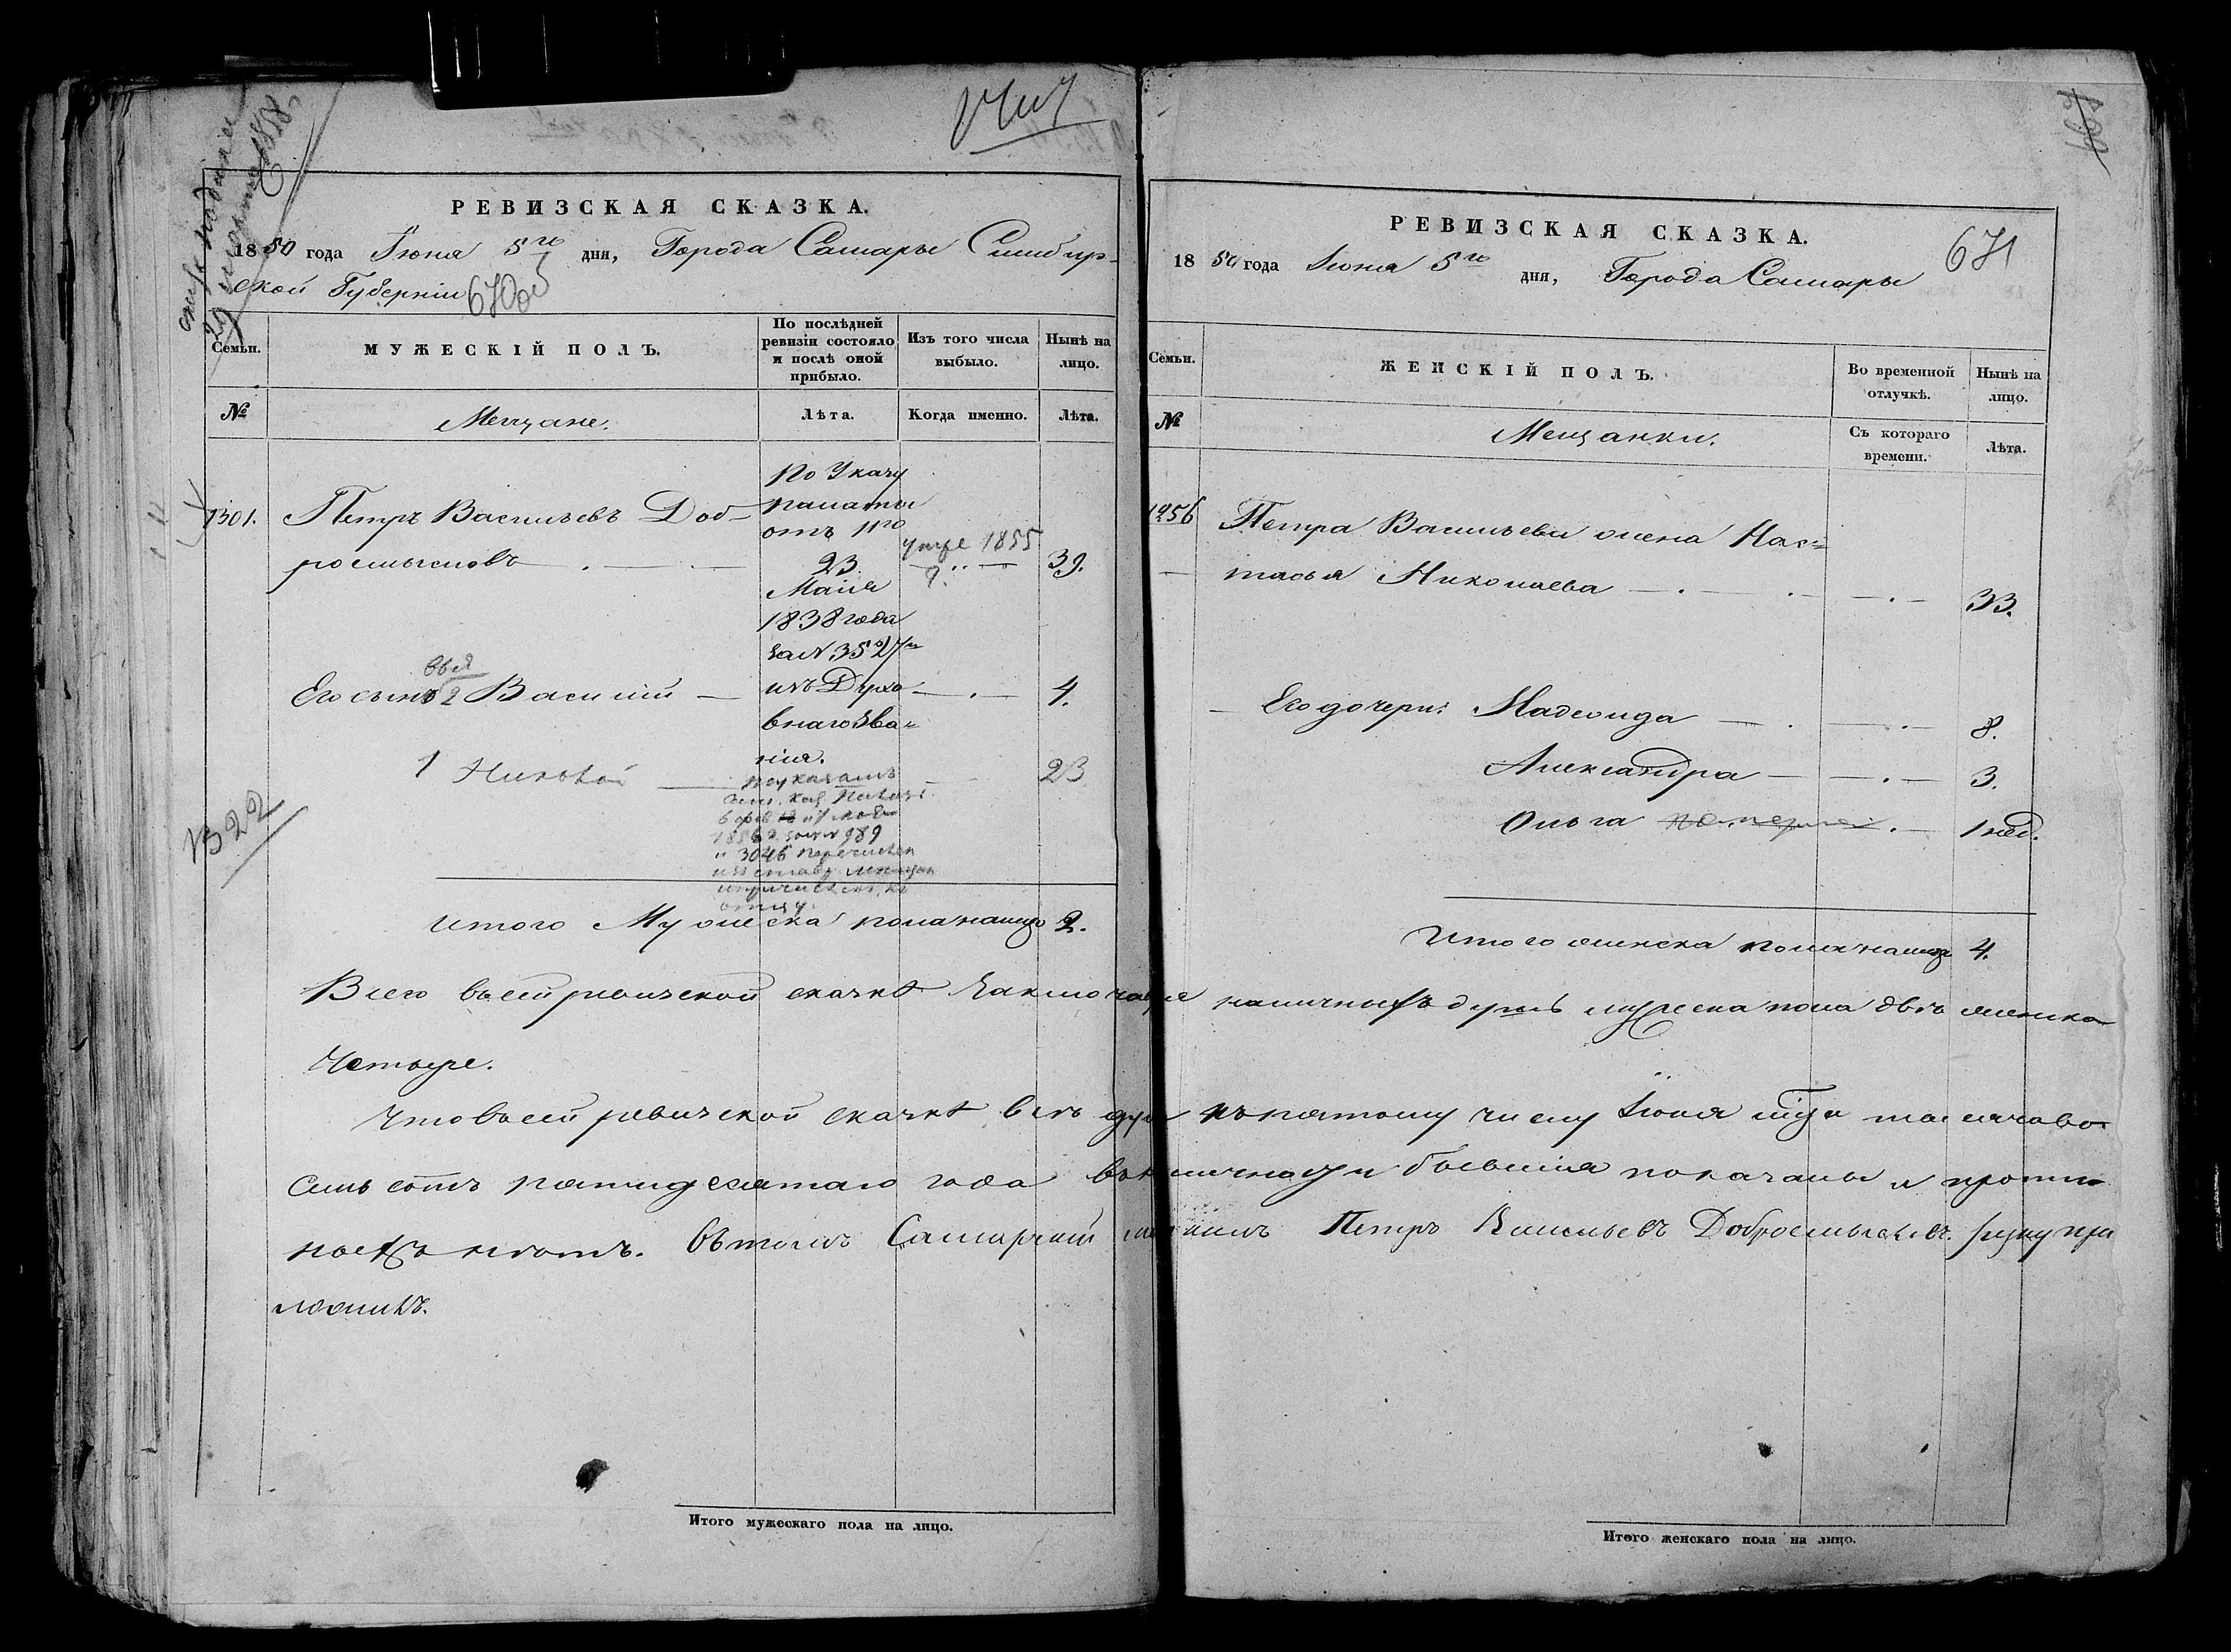 РЕВИЗСКАЯ СКАЗКА.
1850 года Іюня 5го дня, Города Самары Симбир-
ской Губерніи 670об
Семьи.
МУЖЕСКІЙ ПОЛЪ.
По послѣдней
ревизіи состояло
и послѣ оной
прибыло.
Изъ того числа
выбыло.
Нынѣ на
лицо.
№
Мещане.
Лѣта.
Когда именно.
Лѣта.
1301. Петръ Васильевъ Доб-
росмысловъ
По Указу
палаты
отъ
23
Маія
1838 года
за N. 3527м
изъ Духо
внаго зва-
нія.
умре 1855
39.
Его сынъ 2 Василій 4.
1 Николай 23
1322
по указамъ
Сам. Каз. Палаты
1856 г. за NN 989
" 3046 перечислен
отцу.
итого Мужеска пола налицо 2.
РЕВИЗСКАЯ СКАЗКА.
1850 года Іюня 5го дня, Города Самары
671
Семьи.
ЖЕНСКІЙ ПОЛЪ.
Во временной
отлучкѣ.
Нынѣ на
лицо.
№
Мещанки.
Съ котораго
времени.
Лѣта.
1256 Петра Васильева жена Нас-
тасья Николаева 33.
Его дочери: Надежда 8.
Александра 3.
Ольга 1 нед.
Итого женска пола налицо 4.
Всего въ сей ревизской сказкѣ заключается наличныхъ душъ мужеска пола двѣ женска
Четыре.
Что въ сей ревизской сказкѣ всѣ души къ пятому числу Іюня тысяча во-
семь сотъ пятидесятаго года въ наличности бывшія показаны и пропи-
ски нѣтъ. Въ томъ Самарскій мещанинъ Петръ Васильевъ Добросмысловъ руку при
ложилъ.
Итого мужескаго пола на лицо.
Итого женскаго пола на лицо.